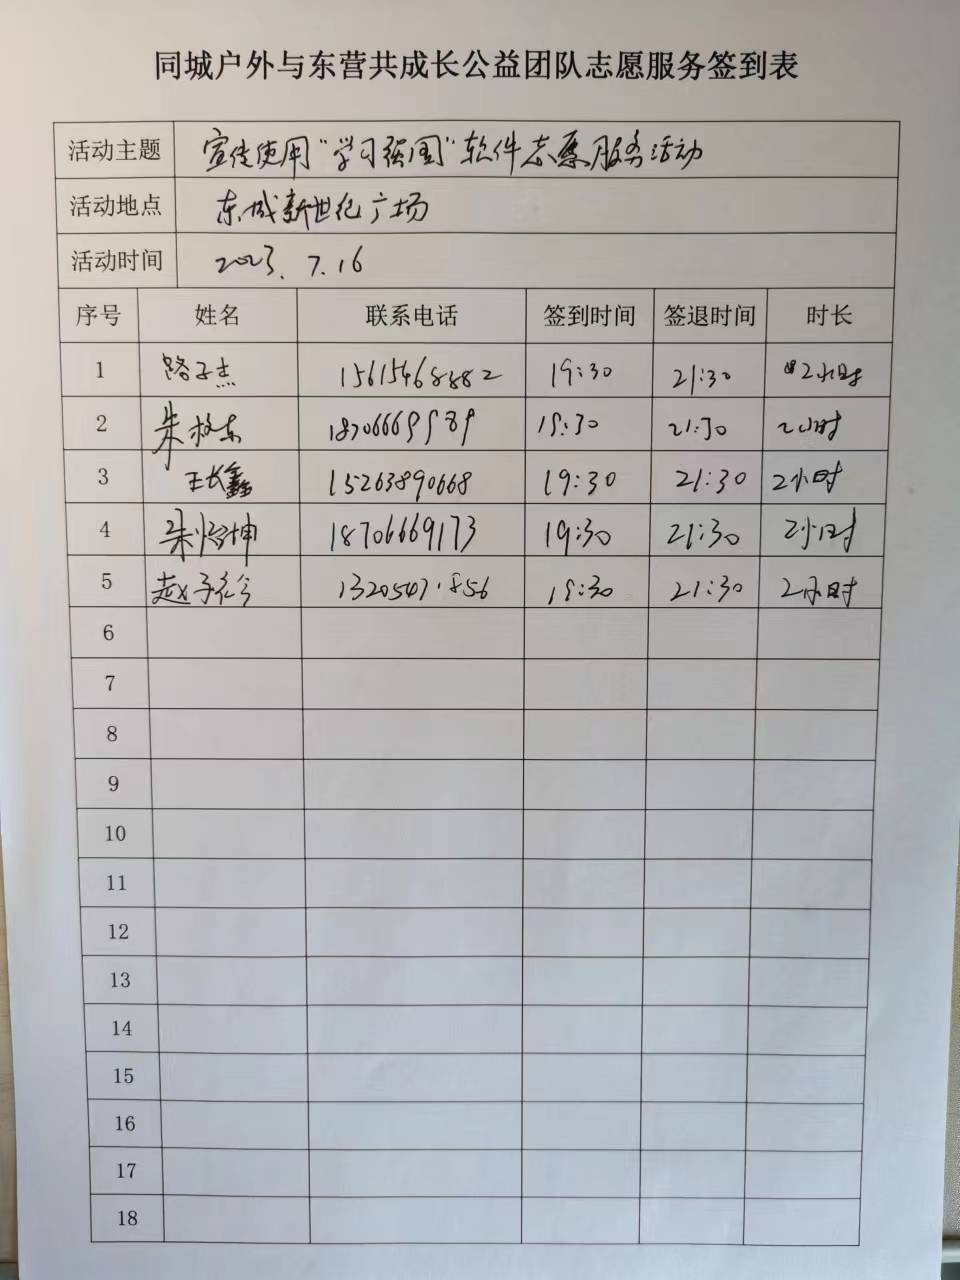 同城户外与东营共成长公益团队志愿服务签到表
活动主题 宣传使用“学习强国”软件志愿服务活动
活动地点 东城新世纪广场
活动时间 2023.7.16
序号 姓名 联系电话 签到时间 签退时间 时长
1 路子杰 15615468882 19:30 21:30 2小时
2 朱 18706669989 19:30 21:30 2小时
3 王长鑫 15263890668 19:30 21:30 2小时
4 朱 坤 18706669173 19:30 21:30 2小时
5 赵子 19:30 21:30 2小时
6
7
8
9
10
11
12
13
14
15
16
17
18